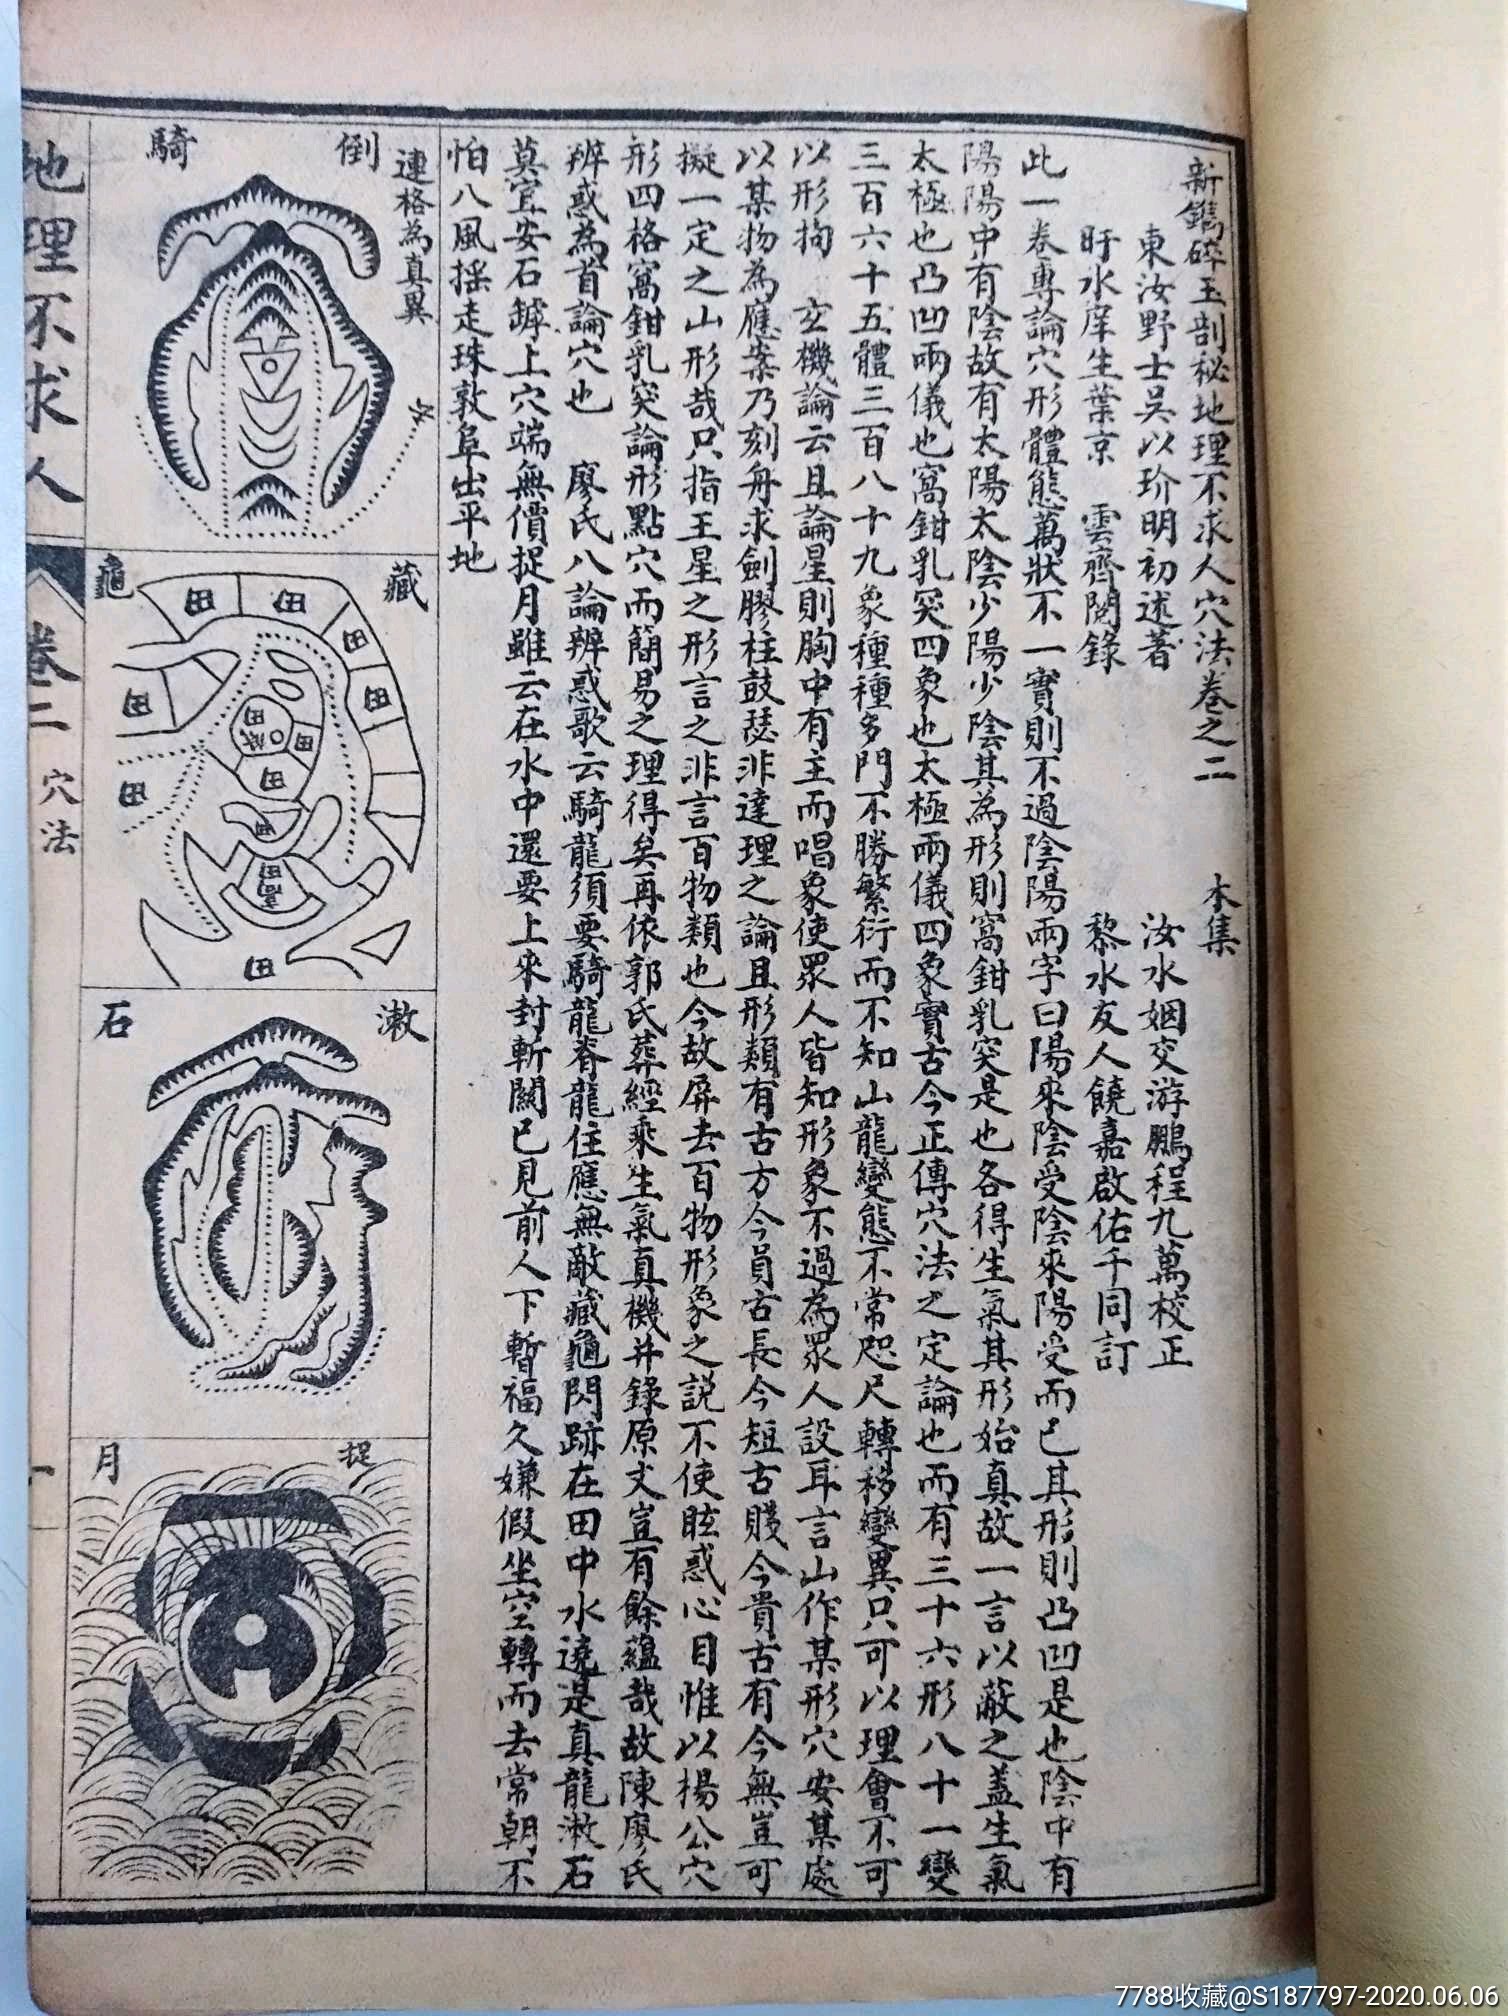 新鐫碎玉剖秘地理不求人穴法卷之二 本集
東汝野士吳以玠明初述著 汝水姻交游鵬程九萬校正
盱水庠生葉京 雲齊閱錄 黎水友人饒嘉啟佑千同訂
此一卷專論穴形體態萬狀不一實則不過陰陽兩字曰陽來陰受陰來陽受而已其形則凸凹是也陰中有
陽陽中有陰故有太陽太陰少陽少陰其為形則窩鉗乳突是也各得生氣其形始真故一言以蔽之蓋生氣
太極也凸凹兩儀也窩鉗乳突四象也太極兩儀四象實古今正傳穴法之定論也而有三十六形八十一變
三百六十五體三百八十九象種種多門不勝繁衍而不知山龍變態不常咫尺轉移變異只可以理會不可
以形拘 玄機論云且論星則胸中有主而唱象使眾人皆知形象不過為眾人設耳言山作某形穴安某處
以某物為應案乃刻舟求劍膠柱鼓瑟非達理之論且形類有古方今員古長今短古賤今貴古有今無豈可
擬一定之山形哉只指王星之形言之非言百物類也今故屏去百物形象之説不使眩惑心目惟以楊公穴
形四格窩鉗乳突論形點穴而簡易之理得矣再依郭氏葬經乘生氣真機并錄原文豈有餘蘊哉故陳廖氏
辨惑為首論穴也 廖氏八論辨惑歌云騎龍須要騎龍脊龍住應無敵藏龜閃跡在田中水遶是真龍漱石
莫宜安石罅上穴端無價捉月雖云在水中還要上來封斬關已見前人下暫福久嫌假坐空轉而去常朝不
怕八風搖走珠敦阜出平地
連格為真異
倒騎
藏龜
漱石
捉月
地理不求人 卷二 穴法 一
7788收藏@S187797-2020.06.06